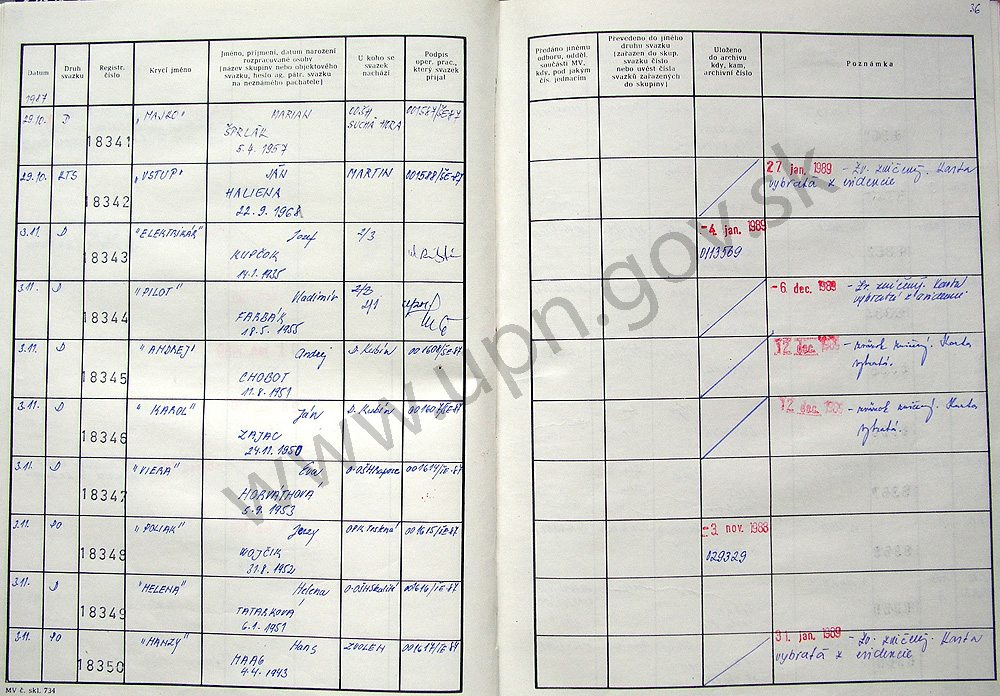 36
Datum
Druh svazku
Registr. číslo
Krycí jméno
Jméno, příjmení, datum narození
rozpracované osoby
(název skupiny nebo objektového
svazku, heslo ag. pátr. svazku
na neznámého pachatele)
U koho se
svazek
nachází
Podpis
oper. prac.,
který svazek
přijal
Předáno jinému
odboru, odděl.
součásti MV,
kdy, pod jakým
čís. jednacím
Převedeno do jiného
druhu svazku
(zařazen do skup.
svazku číslo
nebo uvést čísla
svazků zařazených
do skupiny)
Uloženo
do archivu
kdy, kam,
archivní číslo
Poznámka
1987
29.10. D 18341 "MAJKO" MARIAN
ŠPRLÁK
5.4.1957
SUCHÁ HORA
29.10. KTS 18342 "VSTUP" JÁN MARTIN 001588/SE-87
HALIENA
22.9.1968
27. jan. 1989 - Zv. zničený. Karta
vybratá z evidencie
3.11. D 18343 "ELEKTRIKÁR" Jozef 2/3
KUPČOK
14.1.1935
-4. jan. 1989
0113569
3.11. D 18344 "PILOT" Vladimír 2/3
FARBÁK 2/1
18.5.1955
-6. dec. 1989 - Zv. zničený. Karta
vybratá z evidencie
3.11. D 18345 "ANDREJ" Andrej D. Kubín
CHOBOT
11.8.1951
12. dec. 1989 - zničený. Karta
vybratá.
3.11. D 18346 "KAROL" Ján D. Kubín
ZAJAC
24.11.1950
12. dec. 1989 - zničený. Karta
vybratá.
3.11. D 18347 "VIERA" Eva 001614/SE-87
HORVÁTHOVÁ
5.9.1953
3.11. PO 18348 "POLIAK" Jerzy OPK Trstená 001615/SE-87
WOJČIK
31.8.1952
-3. nov. 1988
029329
3.11. D 18349 "HELENA" Helena O-OŠH Skalité 001616/SE-87
TATARKOVÁ
6.1.1951
3.11. PO 18350 "HANZY" Hans ZVOLEN 001617/SE-87
MAAG
4.4.1943
31. jan. 1989 - Zv. zničený. Karta
vybratá z evidencie
MV č. skl. 734
www.upn.gov.sk